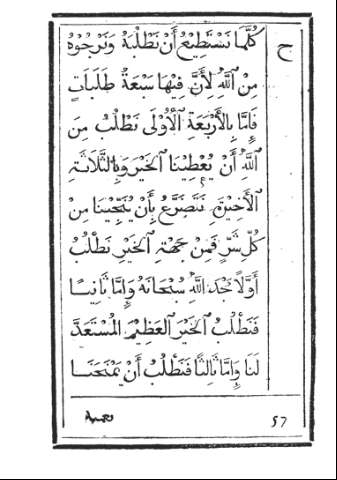 ح كُلَّمَا نَسْتَطِيْعُ أَنْ نَطْلُبَهُ وَنَرْجُوْهُ
مِنَ ٱللّٰهِ لِأَنَّ فِيْهَا سَبْعَةُ طَلَبَاتٍ
فَإِمَّا بِالْأَرْبَعَةِ ٱلْأُوْلَى نَطْلُبُ مِنَ
ٱللّٰهِ أَنْ يُعْطِيْنَا ٱلْخَيْرَ وَبِالثَّلَاثَةِ
ٱلْأَخِيْرَةِ نَتَضَرَّعُ بِأَنْ يُنَجِّيْنَا مِنْ
كُلِّ شَرٍّ فَمِنْ جِهَةِ ٱلْخَيْرِ نَطْلُبُ
أَوَّلًا مَجْدَ ٱللّٰهِ سُبْحَانَهُ وَإِمَّا ثَانِيًا
فَنَطْلُبُ ٱلْخَيْرَ ٱلْعَظِيْمَ ٱلْمُسْتَعَدَّ
لَنَا وَإِمَّا ثَالِثًا فَنَطْلُبُ أَنْ يَمْنَحَنَا
57